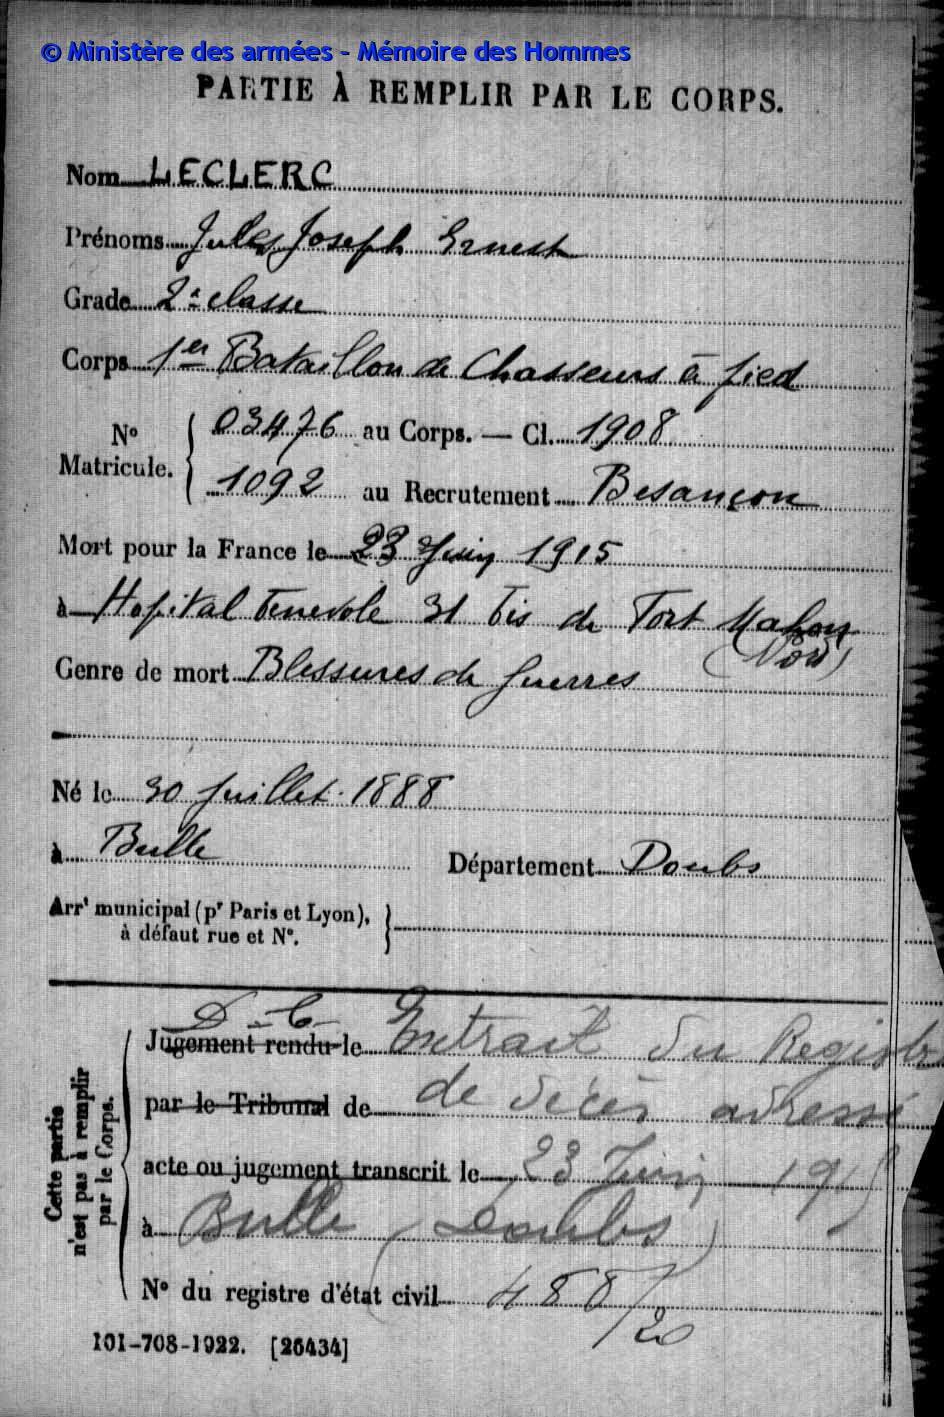 © Ministère des armées - Mémoire des Hommes
PARTIE À REMPLIR PAR LE CORPS.
Nom LECLERC
Prénoms Jules Joseph Ernest
Grade 2e classe
Corps 1er Bataillon de Chasseurs à pied
N° Matricule. { 03476 au Corps. — Cl. 1908
1092 au Recrutement Besançon
Mort pour la France le 23 Juin 1915
à Hopital benevole 31 bis de Fort Mahon
(Nord)
Genre de mort Blessures de guerres
Né le 30 Juillet 1888
à Bulle Département Doubs
Arrt municipal (pr Paris et Lyon), à défaut rue et N°. }
D. C.
Jugement rendu le Extrait du Registre
par le Tribunal de de décès adressé
acte ou jugement transcrit le 23 Juin 1915
à Bulle (Doubs)
N° du registre d'état civil 488/20
Cette partie n'est pas à remplir par le Corps.
101-708-1922. [26434]